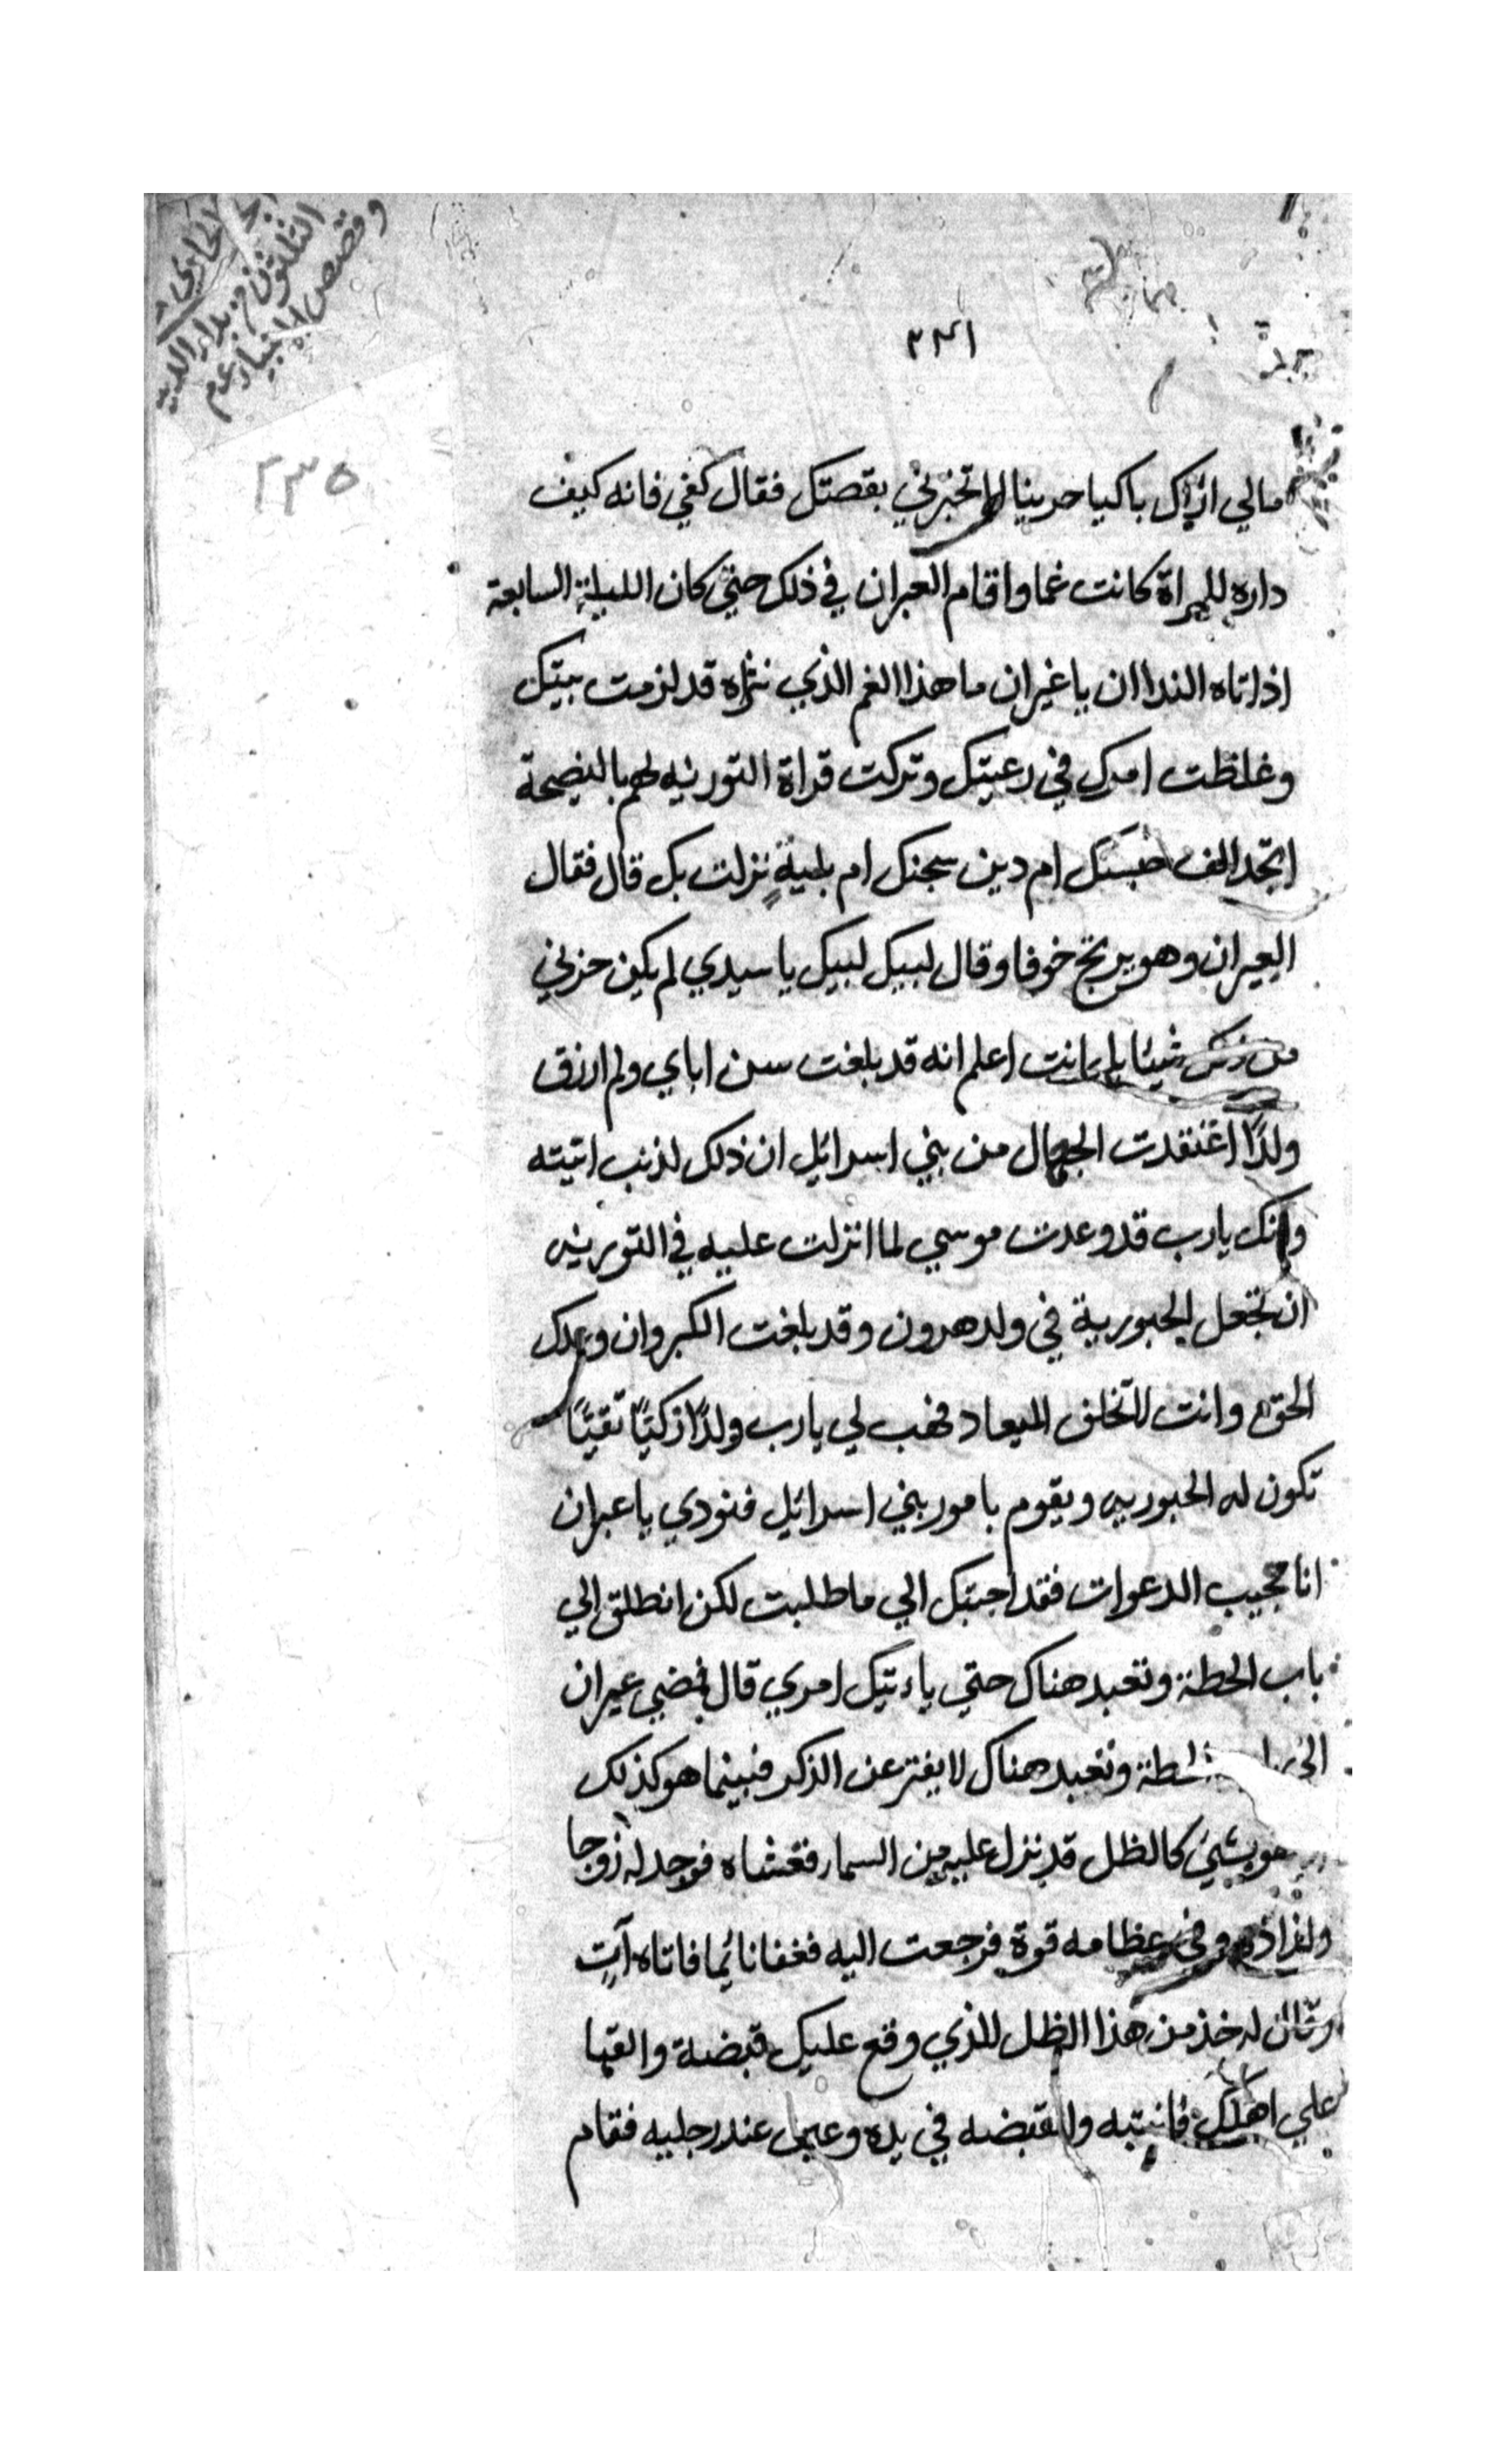 الحادي و
الثلثون في بداء الدنيا
وقصص الانبياء عم
٣٣١
٢٣٥
مالي اراك باكيا حزينا لا تخبرني بقصتك فقال كفي فانه كيف
داره للمراة كانت غما واقام العبران في ذلك حتي كان الليلة السابعة
اذ اتاه الندا ان يا عيران ما هذا الغم الذي نراه قد لزمت بيتك
وغلظت امرك في رعيتك وتركت قراة التورية لهم بالنصيحة
الف حبسك ام دين سجنك ام بلية نزلت بك قال فقال
العيران وهو يرتج خوفا وقال لبيك لبيك يا سيدي لم يكن حزني
من شيئا بل انت اعلم انه قد بلغت سن اباي ولم ارزق
ولدًا اعتقدت الجهال من بني اسرائيل ان ذلك لذنب اتيته
وانك يا رب قد وعدت موسي لما انزلت عليه في التورية
ان تجعل الحبورية في ولد هرون وقد بلغت الكبر وان وعدك
الحق وانت لا تخلف الميعاد فهب لي يا رب ولدًا زكيًا تقيًا
تكون له الحبوريه ويقوم بامور بني اسرائيل فنودي يا عبران
انا مجيب الدعوات فقد اجبتك الي ما طلبت لكن انطلق الي
باب الحطة وتعبد هناك حتي ياءتيك امري قال فمضي عيران
الي الحطة وتعبد هناك لا يفتر عن الذكر فبينما هو كذلك
هو بشيء كالظل قد نزل عليه من السماء فغشاه فوجد له زوجا
وفي عظامه قوة فرجعت اليه فغفا نائما فاتاه آتٍ
وقال له خذ من هذا الظل الذي وقع عليك قبضة والقها
علي اهلك فانتبه والقبضه في يده وعيها عند رجليه فقام